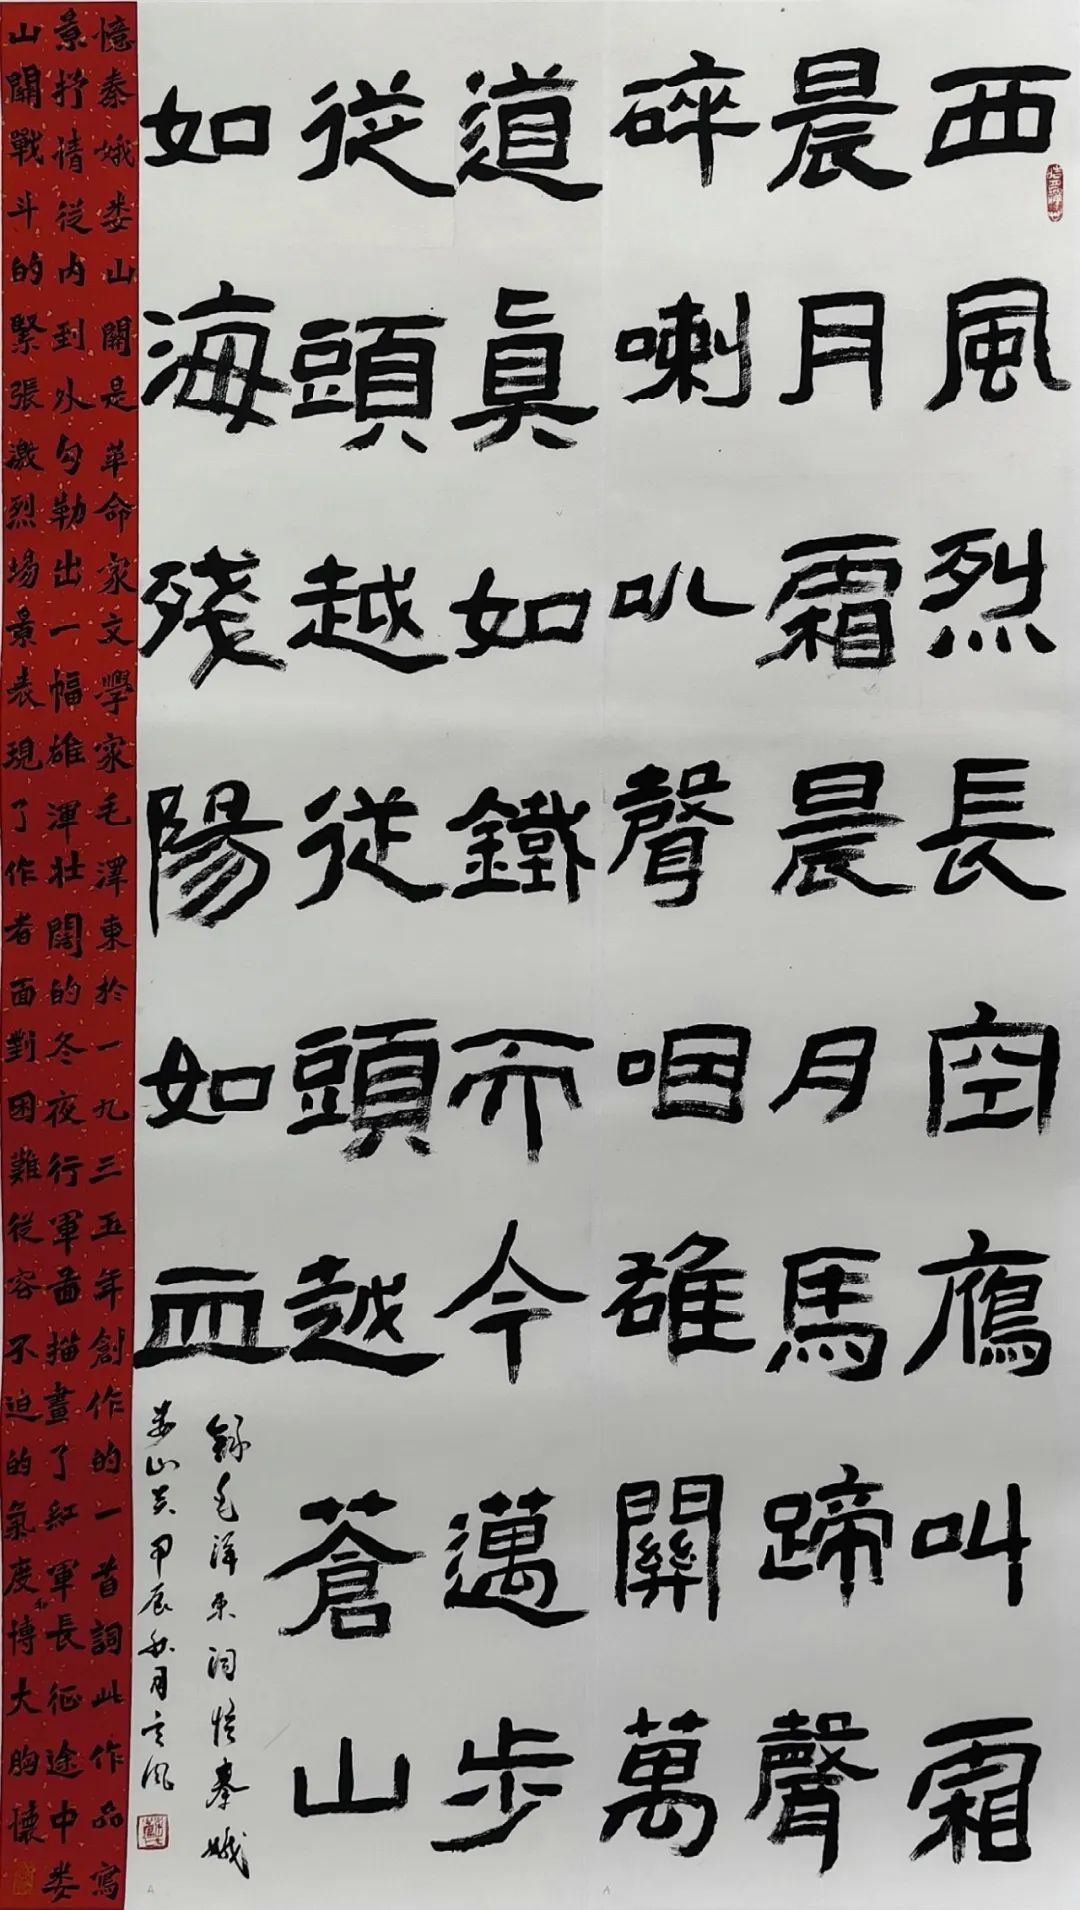 西風烈長空鴈叫霜
晨月霜晨月馬蹄聲
碎喇叭聲咽雄關萬
道真如鐵而今邁步
從頭越從頭越蒼山
如海殘陽如血
錄毛澤東詞憶秦娥
婁山关甲辰秋月言風
憶秦娥娄山關是革命家文學家毛澤東於一九三五年創作的一首詞此作品寫
景抒情從内到外勾勒出一幅雄渾壯闊的冬夜行軍圖描畫了紅軍長征途中娄
山關戰斗的緊張激烈場景表現了作者面對困難從容不迫的氣度和博大胸懷